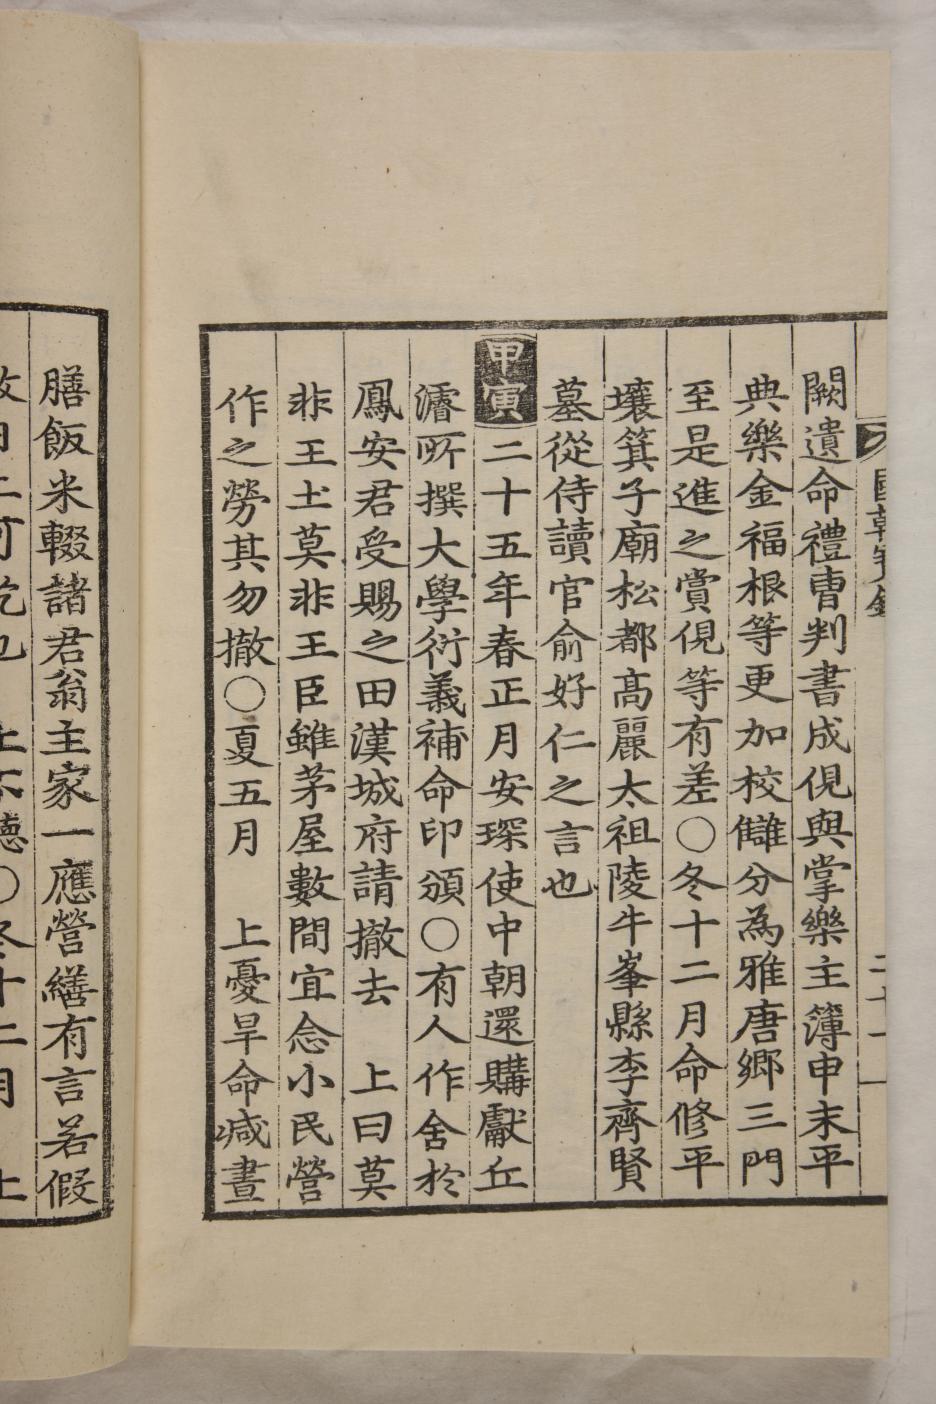 國朝寶鑑
二十一
闕遺命禮曹判書成俔與掌樂主簿申末平
典樂金福根等更加校讎分為雅唐鄉三門
至是進之賞俔等有差○冬十二月命修平
壤箕子廟松都高麗太祖陵牛峯縣李齊賢
墓從侍讀官俞好仁之言也
甲寅二十五年春正月安琛使中朝還購獻丘
濬所撰大學衍義補命印頒○有人作舍於
鳳安君受賜之田漢城府請撤去 上曰莫
非王土莫非王臣雖茅屋數間宜念小民營
作之勞其勿撤○夏五月 上憂旱命减晝
膳飯米輟諸君翁主家一應營繕有言若假